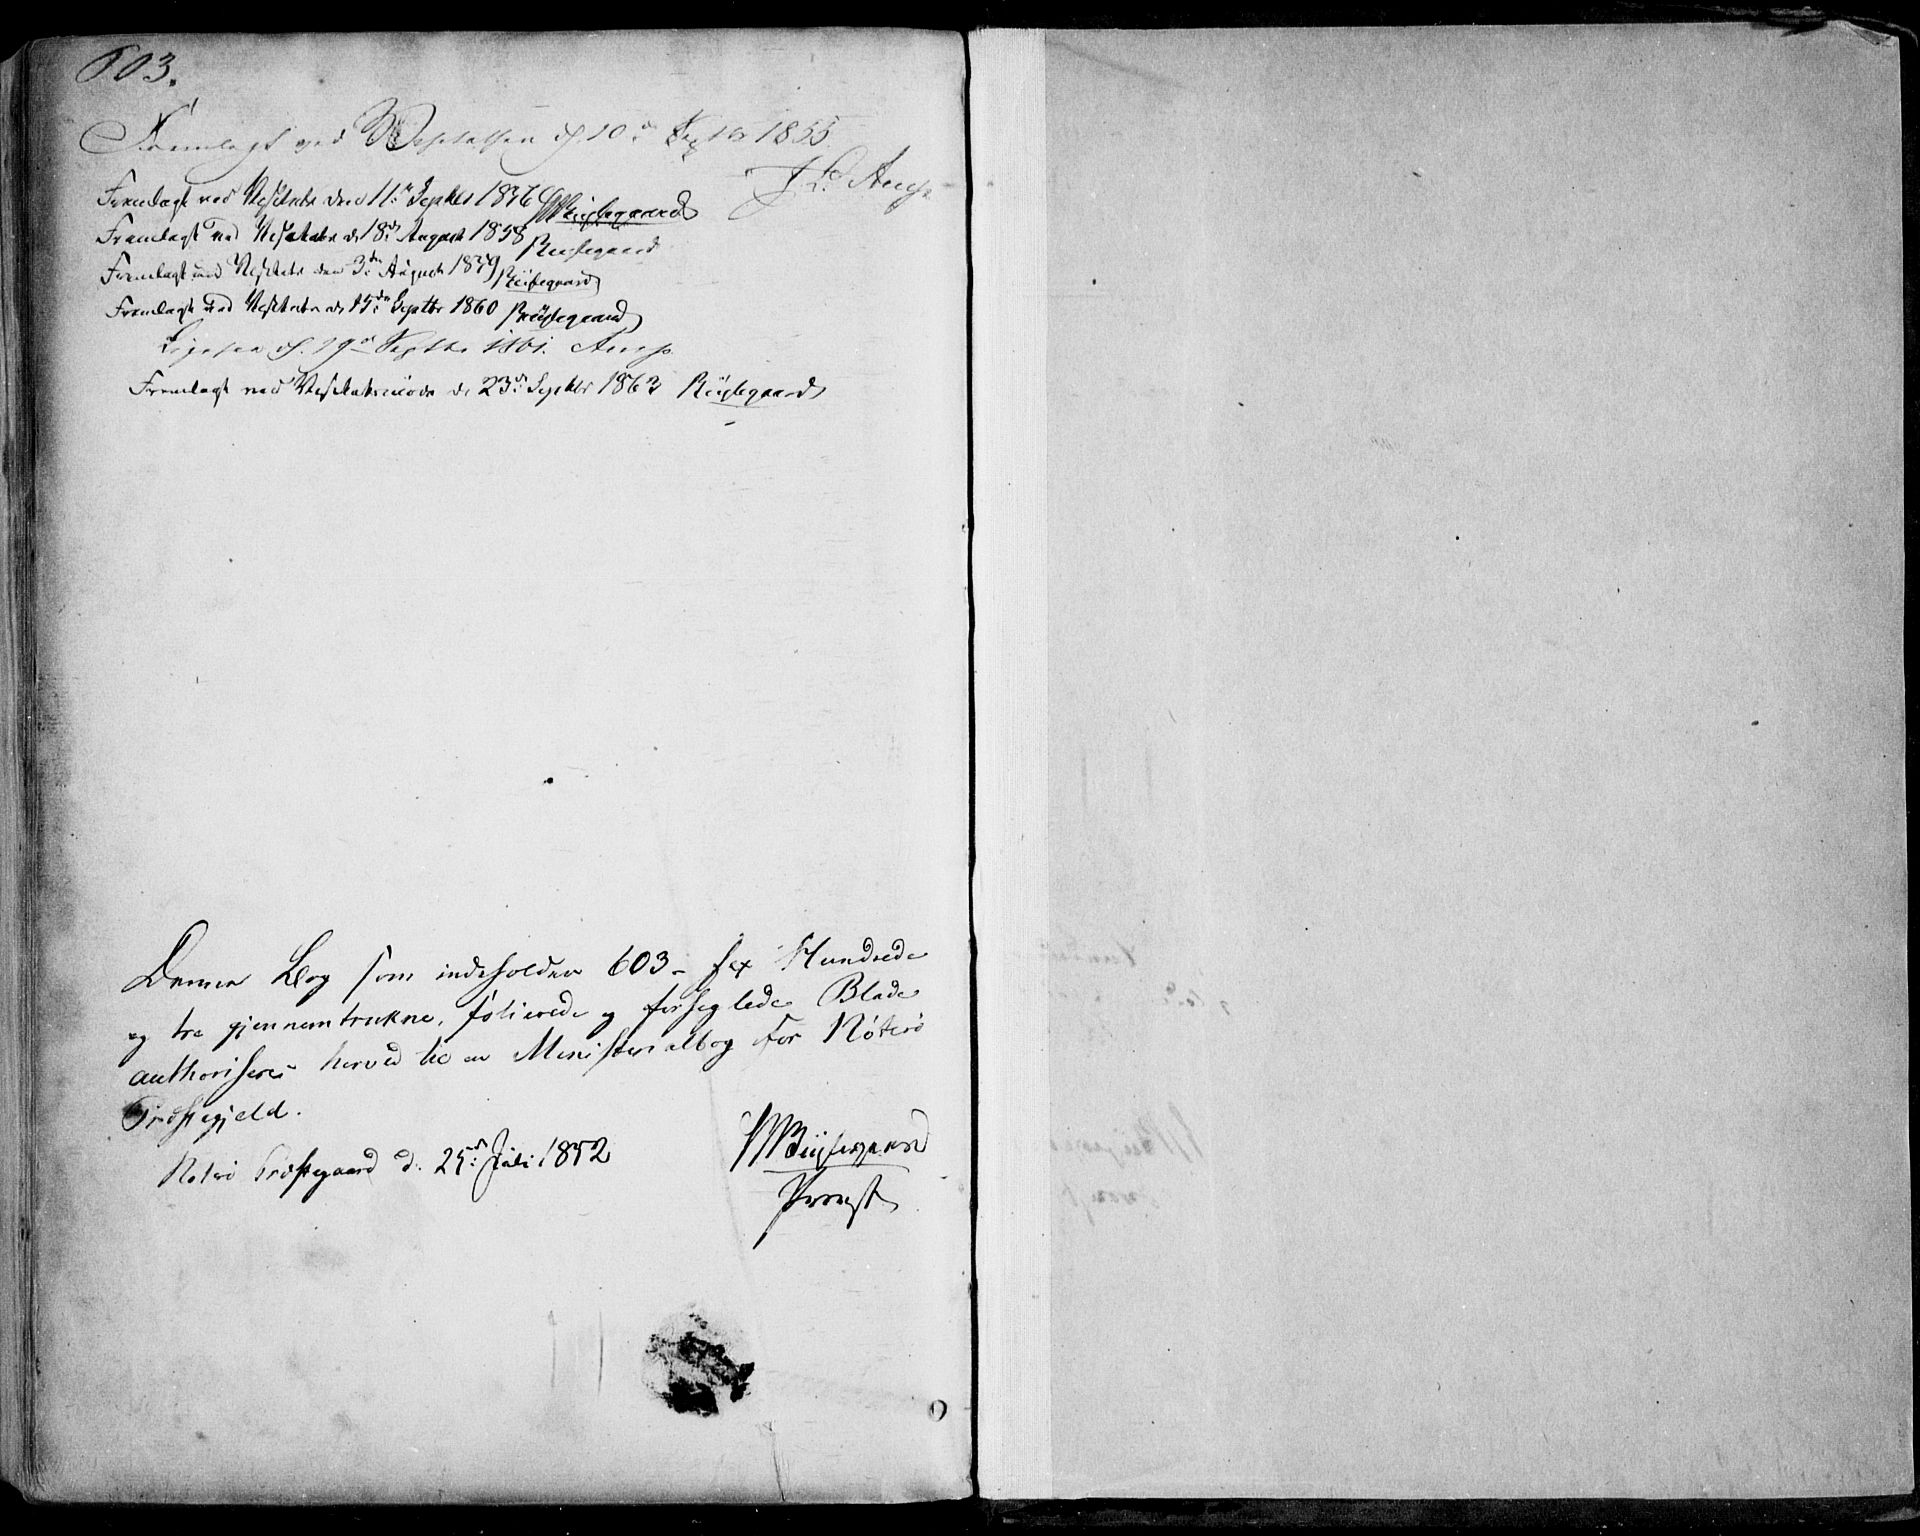 603.
Fremlagt ved Visitatsen d. 10de Septbr 1855.
Fremlagt ved Visitats den 11te Septbr 1856
Fremlagt ved Visitats d. 18de August 1858
Fremlagt ved Visitats den 3die August 1859
Fremlagt ved Visitats d. 15de Septbr 1860
Ligesaa d. 19de Septbr 1861.
Fremlagt ved Visitatsmøde d. 23de Septbr 1863
Denne Bog som indeholder 603 – sex Hundrede
og tre gjennemtrukne, folierede og forseglede Blade
authoriseres herved til en Ministerialbog for Nøterø
Præstegjeld.
Noterø Præstegaard d. 25de Juli 1852
Provst